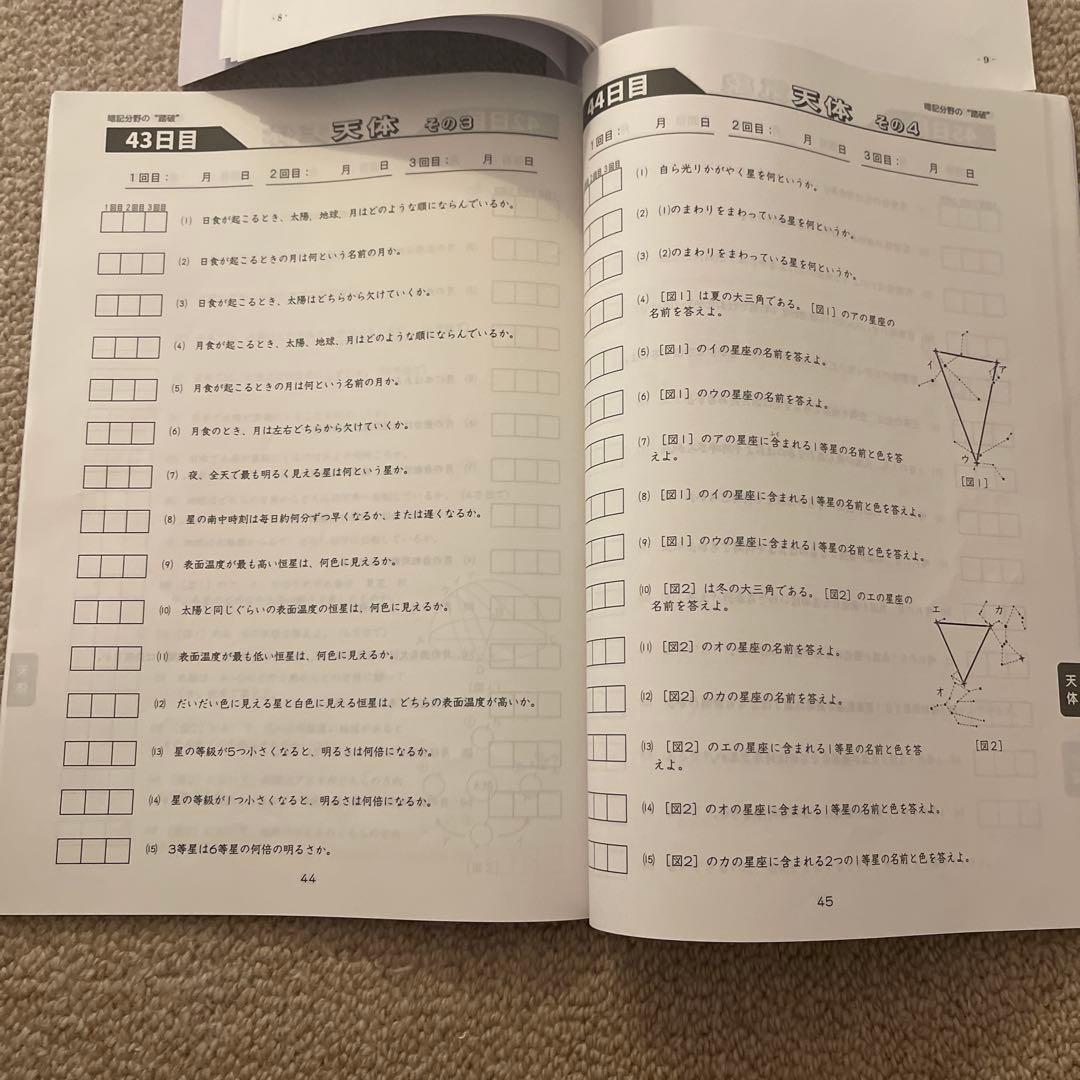 - 8 -
- 9 -
暗記分野の"踏破"
43日目
天体 その3
1回目: 月 日 2回目: 月 日 3回目: 月 日
1回目 2回目 3回目
(1) 日食が起こるとき、太陽、地球、月はどのような順にならんでいるか。
(2) 日食が起こるときの月は何という名前の月か。
(3) 日食が起こるとき、太陽はどちらから欠けていくか。
(4) 月食が起こるとき、太陽、地球、月はどのような順にならんでいるか。
(5) 月食が起こるときの月は何という名前の月か。
(6) 月食のとき、月は左右どちらから欠けていくか。
(7) 夜、全天で最も明るく見える星は何という星か。
(8) 星の南中時刻は毎日約何分ずつ早くなるか、または遅くなるか。
(9) 表面温度が最も高い恒星は、何色に見えるか。
(10) 太陽と同じぐらいの表面温度の恒星は、何色に見えるか。
(11) 表面温度が最も低い恒星は、何色に見えるか。
(12) だいだい色に見える星と白色に見える恒星は、どちらの表面温度が高いか。
(13) 星の等級が5つ小さくなると、明るさは何倍になるか。
(14) 星の等級が1つ小さくなると、明るさは何倍になるか。
(15) 3等星は6等星の何倍の明るさか。
44
44日目
天体 その4
暗記分野の"踏破"
1回目: 月 日 2回目: 月 日 3回目: 月 日
2回目 3回目
(1) 自ら光りかがやく星を何というか。
(2) (1)のまわりをまわっている星を何というか。
(3) (2)のまわりをまわっている星を何というか。
(4) [図1]は夏の大三角である。[図1]のアの星座の
名前を答えよ。
(5) [図1]のイの星座の名前を答えよ。
(6) [図1]のウの星座の名前を答えよ。
ふく
(7) [図1]のアの星座に含まれる1等星の名前と色を答
えよ。
(8) [図1]のイの星座に含まれる1等星の名前と色を答えよ。
(9) [図1]のウの星座に含まれる1等星の名前と色を答えよ。
(10) [図2]は冬の大三角である。[図2]のエの星座の
名前を答えよ。
(11) [図2]のオの星座の名前を答えよ。
(12) [図2]のカの星座の名前を答えよ。
(13) [図2]のエの星座に含まれる1等星の名前と色を答
えよ。
(14) [図2]のオの星座に含まれる1等星の名前と色を答えよ。
(15) [図2]のカの星座に含まれる2つの1等星の名前と色を答えよ。
イ
ア
ウ
[図1]
エ
カ
オ
[図2]
天体
45